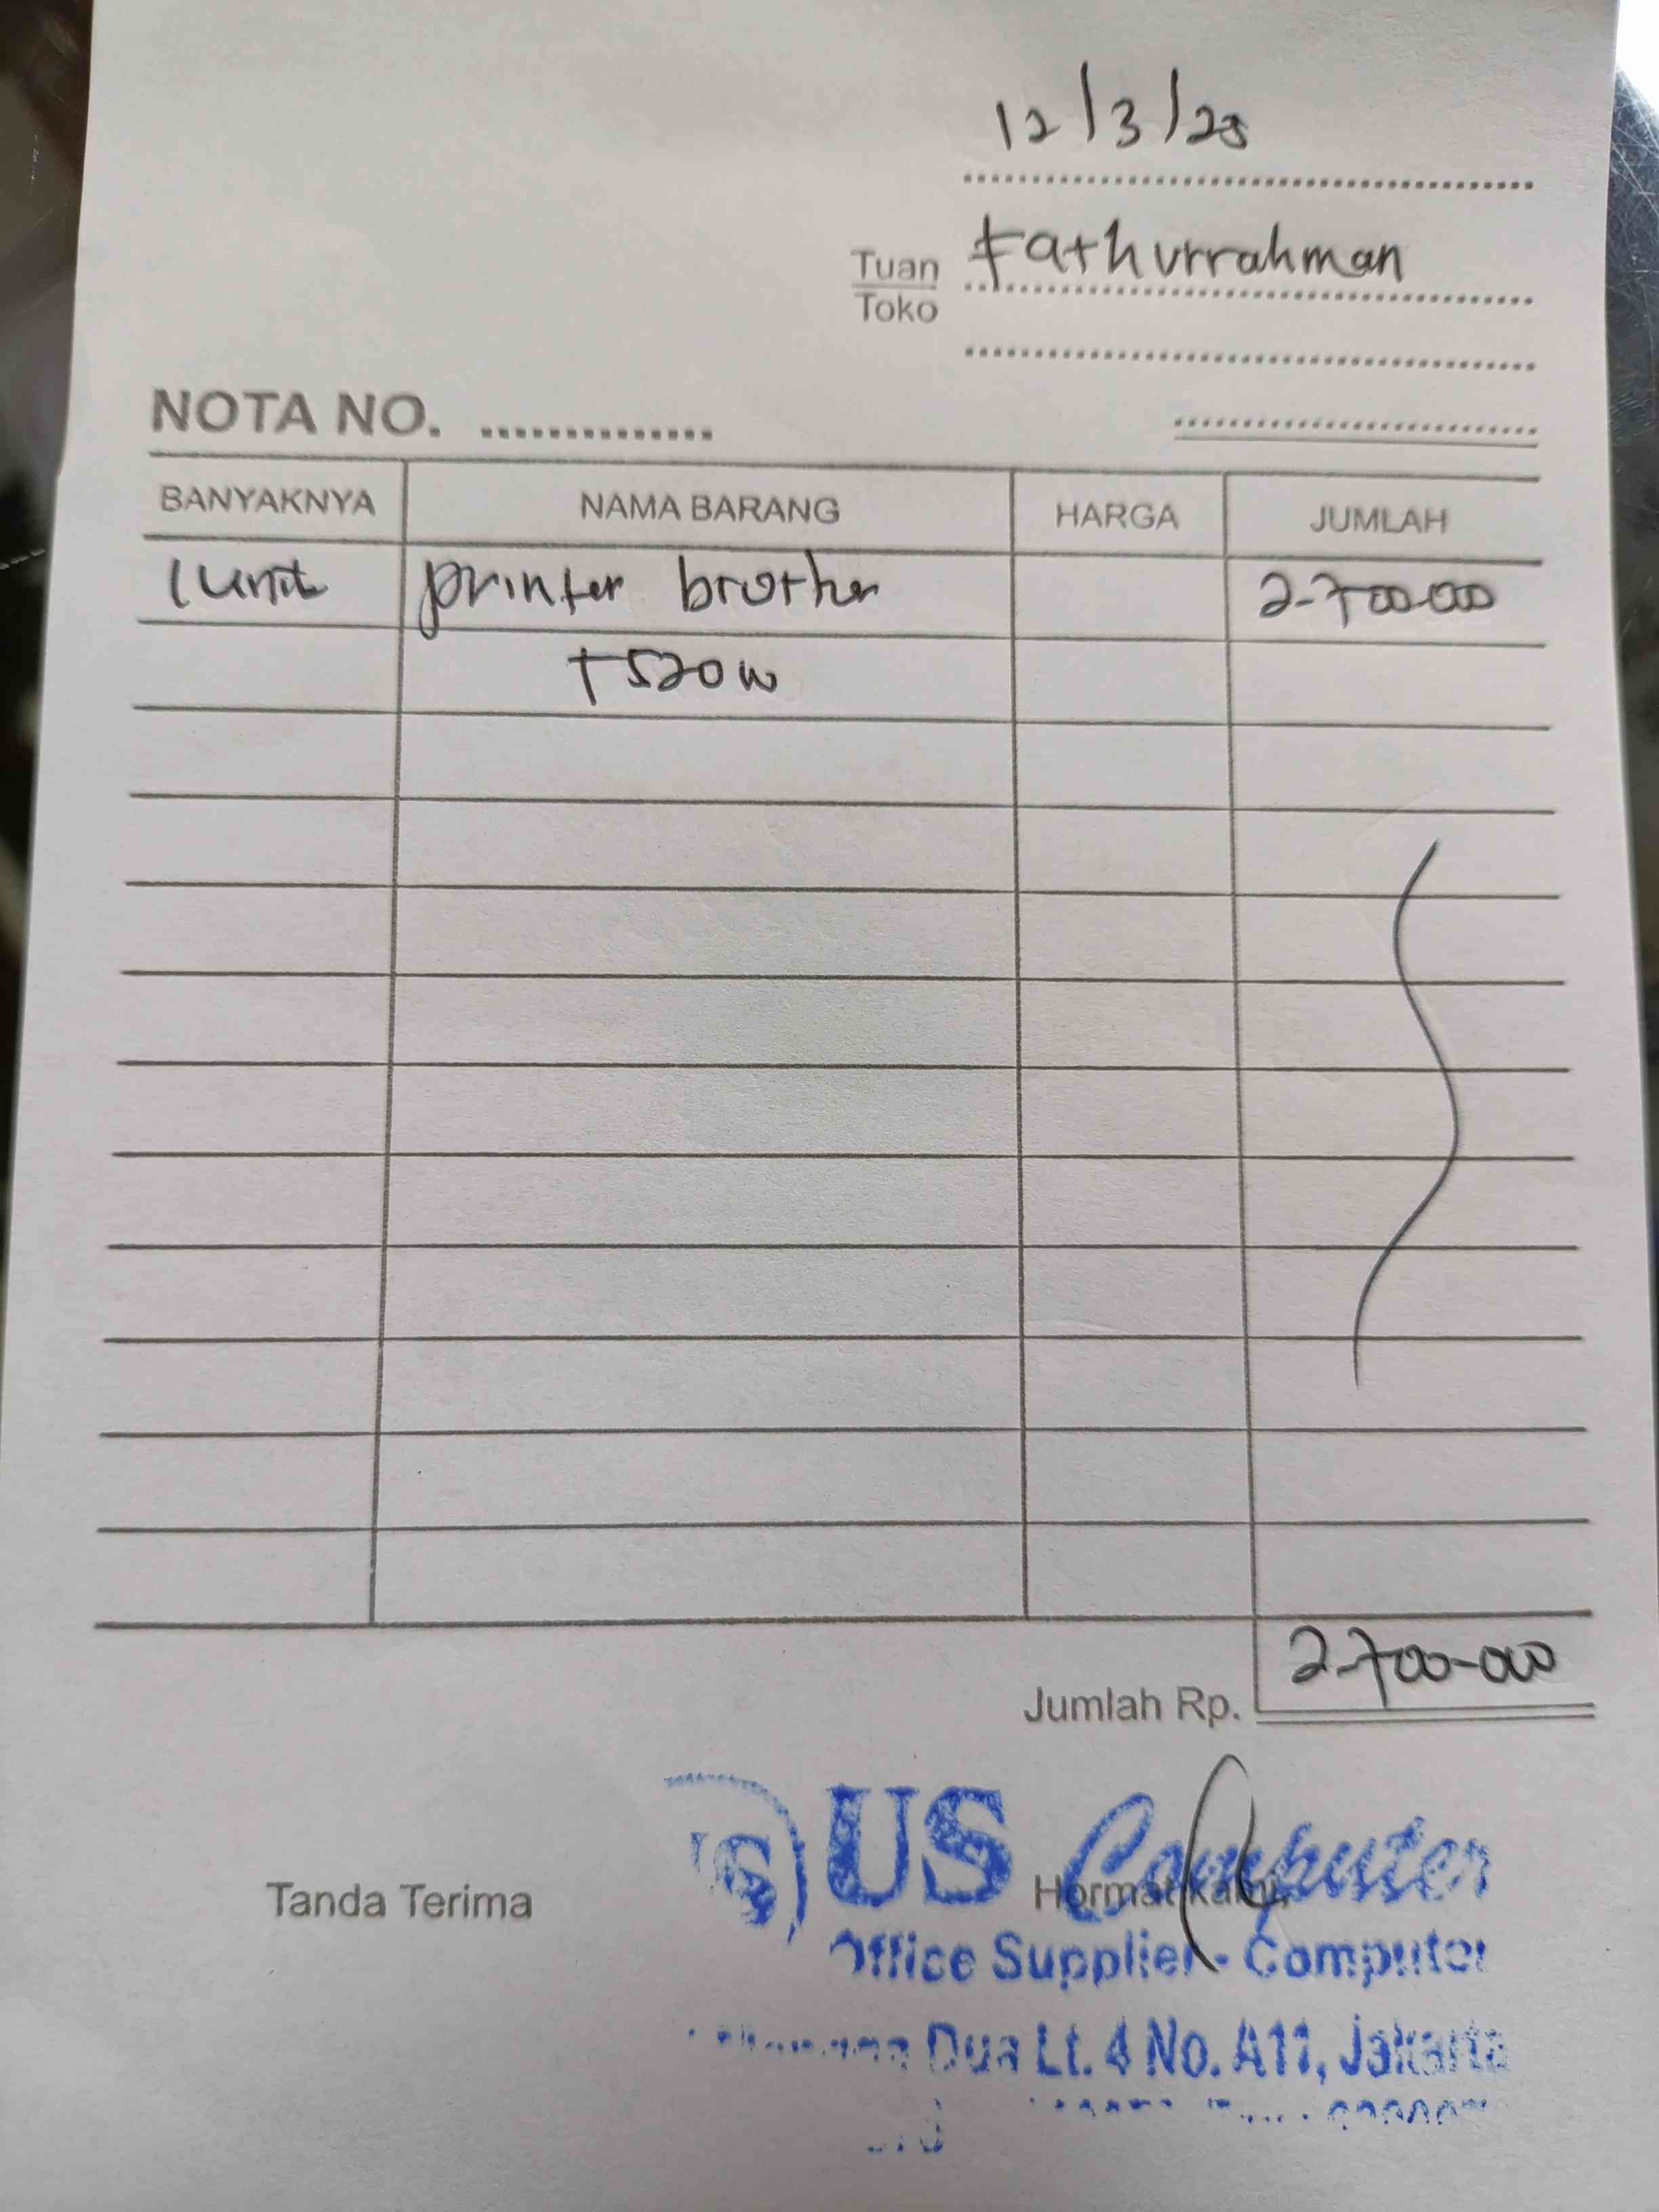 12/3/25
Tuan Fathurrahman
Toko
NOTA NO. ..............
BANYAKNYA NAMA BARANG HARGA JUMLAH
1 unit printer brother 2-700-000
T520W
2-700-000
Jumlah Rp.
US Computer
Tanda Terima Hormat Kami,
Office Supplier - Computer
Dua Lt. 4 No. A11, Jakarta